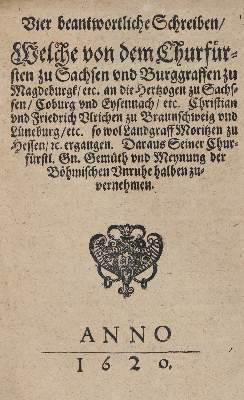 Vier beantwortliche Schreiben/
Welche von dem Churfür-
sten zu Sachsen vnd Burggraffen zu
Magdeburgk/ etc. an die Hertzogen zu Sachs-
sen/ Coburg vnd Eysennach/ etc. Christian
vnd Friedrich Vlrichen zu Braunschweig vnd
Lüneburg/ etc. so wol Landgraff Moritzen zu
Hessen/ ꝛc. ergangen. Daraus Seiner Chur-
fürstl. Gn. Gemüth vnd Meynung der
Böhmischen Vnruhe halben zu-
vernehmen.
ANNO
1620.